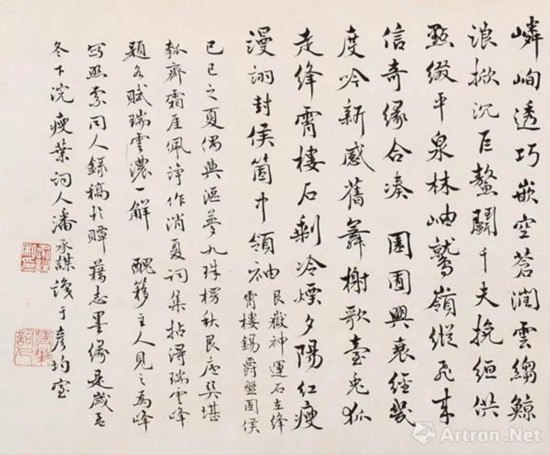 嶙峋透巧嵌空蒼潤雲縐鯨
浪掀沉巨鰲鬬千夫挽絙供
點綴平泉林岫鷲嶺縱飛來
信奇緣合湊 園囿興衰經幾
度吟新感舊舞榭歌臺兔狐
走絳霄樓石剩冷煙夕陽紅瘦
漫詡封侯箇中領袖 艮嶽神運石在絳
霄樓錫爵盤固侯
己巳之夏偶與漚夢九珠楞秋艮廬吳堪
瓠齋霜厓佩諍作消夏詞集拈得瑞雲峰
題為賦瑞雲濃一解 醜簃主人見之為峰
寫照索同人錄稿於贉藉志墨緣是歲
冬下浣瘦葉詞人潘承謀識于彥均室
Artron.Net